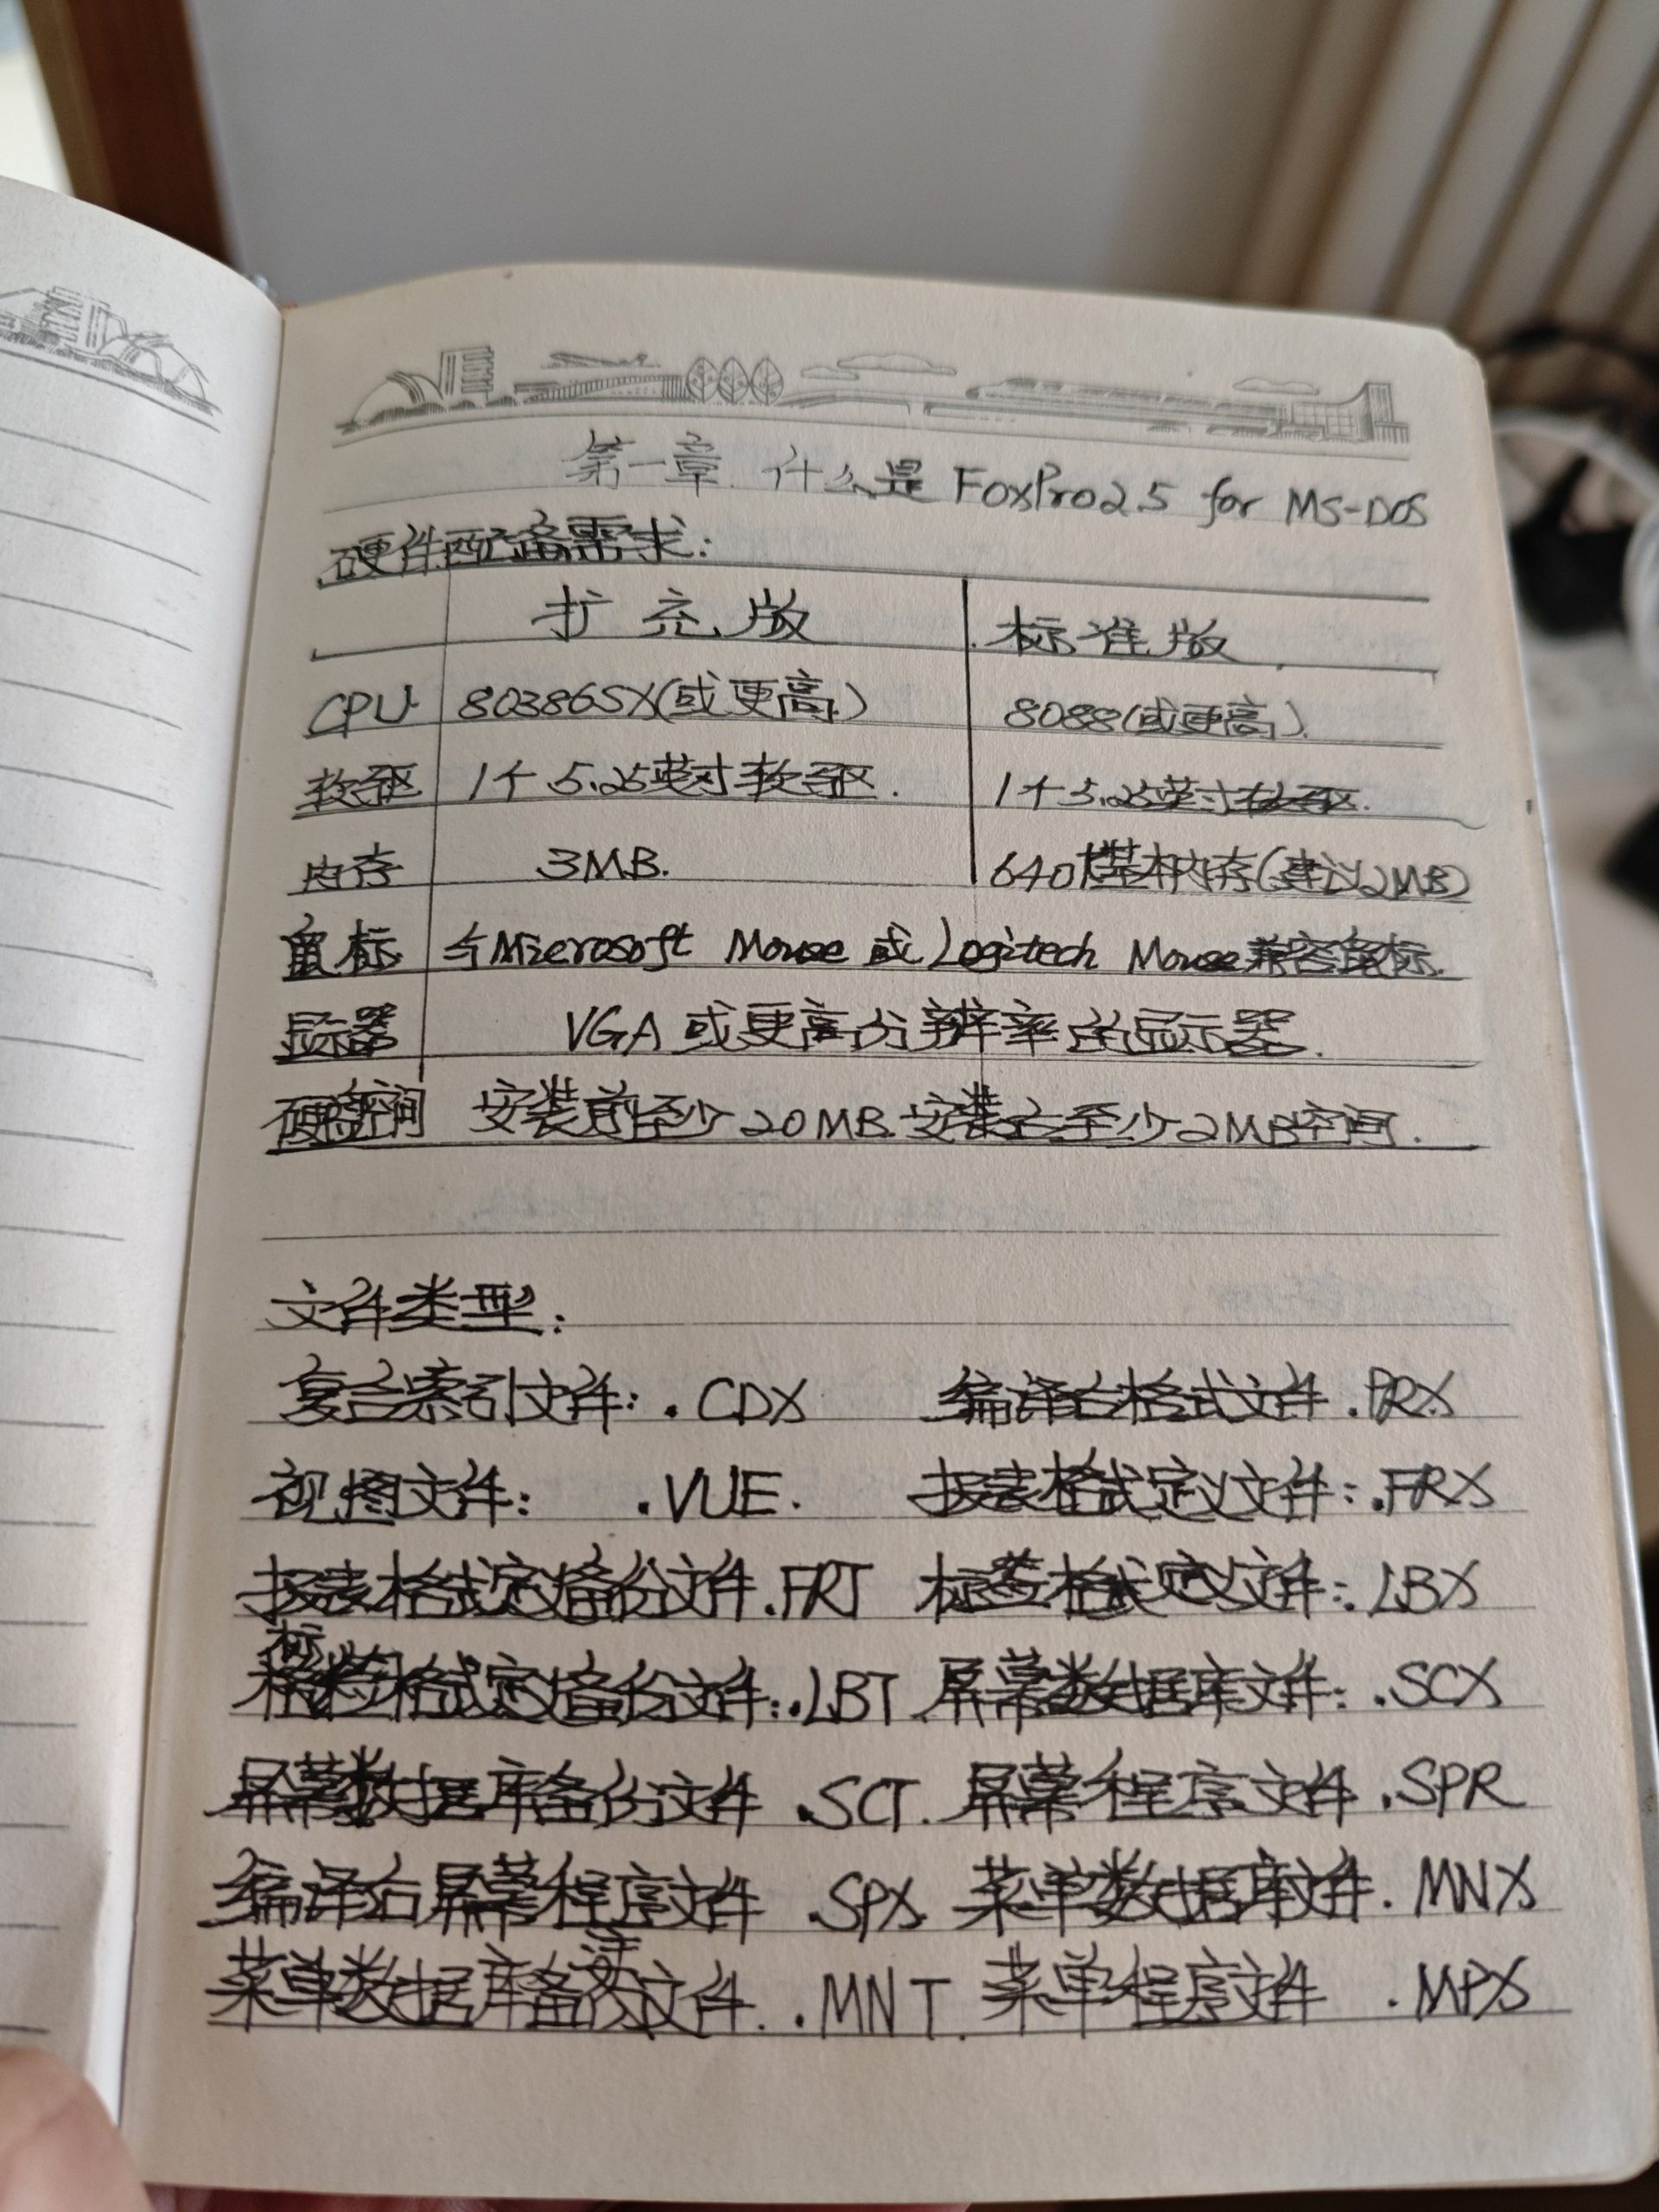 第一章 什么是 FoxPro2.5 for MS-DOS
硬件配备需求:
扩充版 标准版
CPU 80386SX(或更高) 8088(或更高).
软驱 1个5.25英寸软驱. 1个5.25英寸软驱.
内存 3MB. 640K基本内存(建议2MB)
鼠标 与Microsoft Mouse 或 Logitech Mouse兼容鼠标.
显示器 VGA 或更高分辨率的显示器.
硬盘空间 安装前至少20MB.安装后至少2MB空间.
文件类型:
复合索引文件: .CDX 编译后格式文件.PRX
视图文件: .VUE. 报表格式定义文件:.FRX
报表格式定义备份文件.FRT 标签格式定义文件:.LBX
标签格式定义备份文件:.LBT 屏幕数据库文件: .SCX
屏幕数据库备份文件 .SCT. 屏幕程序文件 .SPR
编译后屏幕程序文件 .SPX 菜单数据库文件. MNX
菜单数据库备注文件. .MNT. 菜单程序文件 .MPX